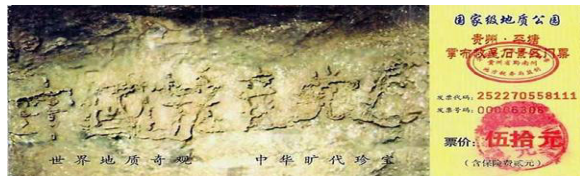 中國共産党亡
世界地质奇观 中华旷代珍宝
国家级地质公园
贵州·平塘
掌布藏字石景区门票
贵州省黔南州
发票代码：252270558111
发票号码：00006306
票价：伍拾元
（含保险费贰元）